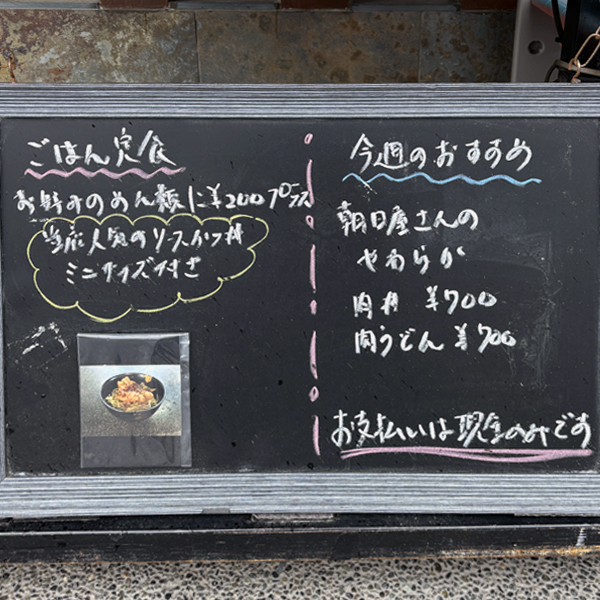 ごはん定食
お好みのめん類に¥200プラス
当店人気のソースカツ丼
ミニサイズ付き
今週のおすすめ
朝日屋さんの
やわらか
肉丼 ¥700
肉うどん ¥700
お支払いは現金のみです